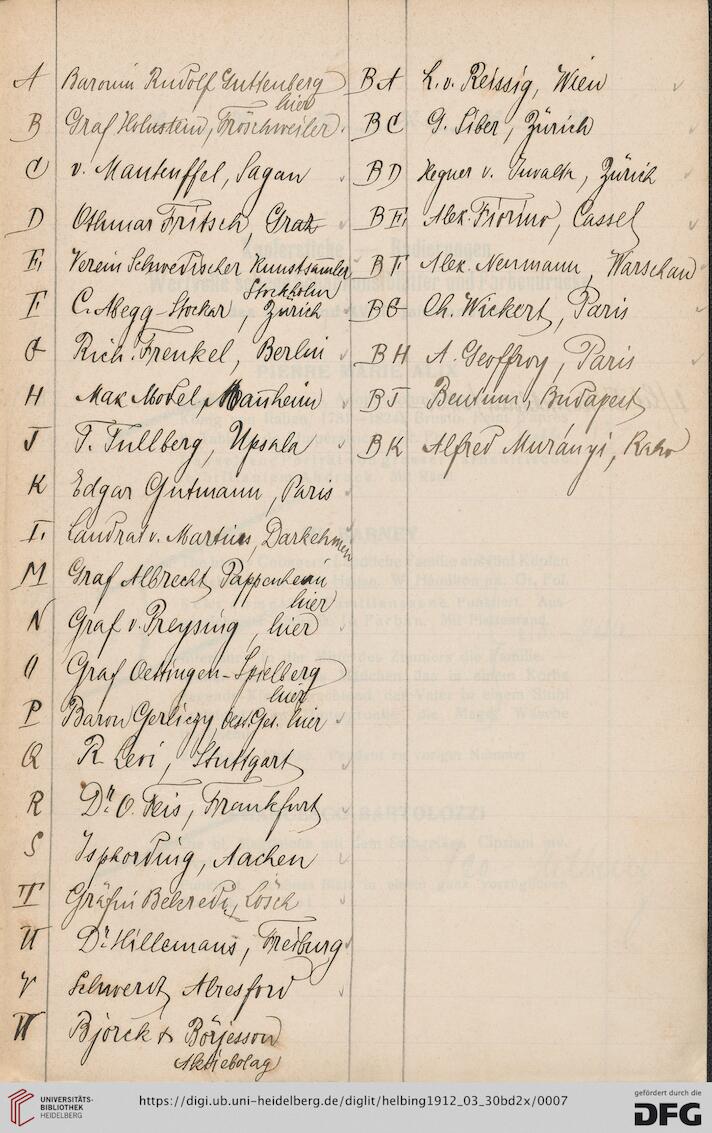 A Baronin Rudolf Guttenberg
hier
B Graf Holnstein, Fröschweiler.
C v. Manteuffel, Sagan
D Othmar Fritsch, Graz
E, Verein Schwedischer Kunstsammler
Stockholm
F C. Abegg-Stockar, Zürich
G Rich. Frenkel, Berlin
H Max Model, Manheim
J T. Tullberg, Upsala
K Edgar Gutmann, Paris
L. Landrat v. Martius, Darkehmen
M Graf Albrecht Pappenheim
hier
N Graf v. Preysing, hier
O Graf Oettingen-Spielberg
hier
P Baron Gerliczy, Oest. Ges. hier
Q R. Levi, Stuttgart
R Dr. O. Feis, Frankfurt
S Isphording, Aachen
T Gräfin Belcredi, Lösch
U Dr. Hillemans, Freiburg
V Schwerdt, Alresford
W Björck & Börjesson
Aktiebolag
BA L. v. Reissig, Wien
BC G. Siber, Zürich
BD Hegner v. Juvalta, Zürich
BE, Alex. Fiorino, Cassel
BF Alex. Neumann, Warschau
BG Ch. Wickert, Paris
BH A. Geoffroy, Paris
BJ Budapest
BK Alfred Murányi,
UNIVERSITÄTS-
BIBLIOTHEK
HEIDELBERG
https://digi.ub.uni-heidelberg.de/diglit/helbing1912_03_30bd2x/0007
gefördert durch die
DFG